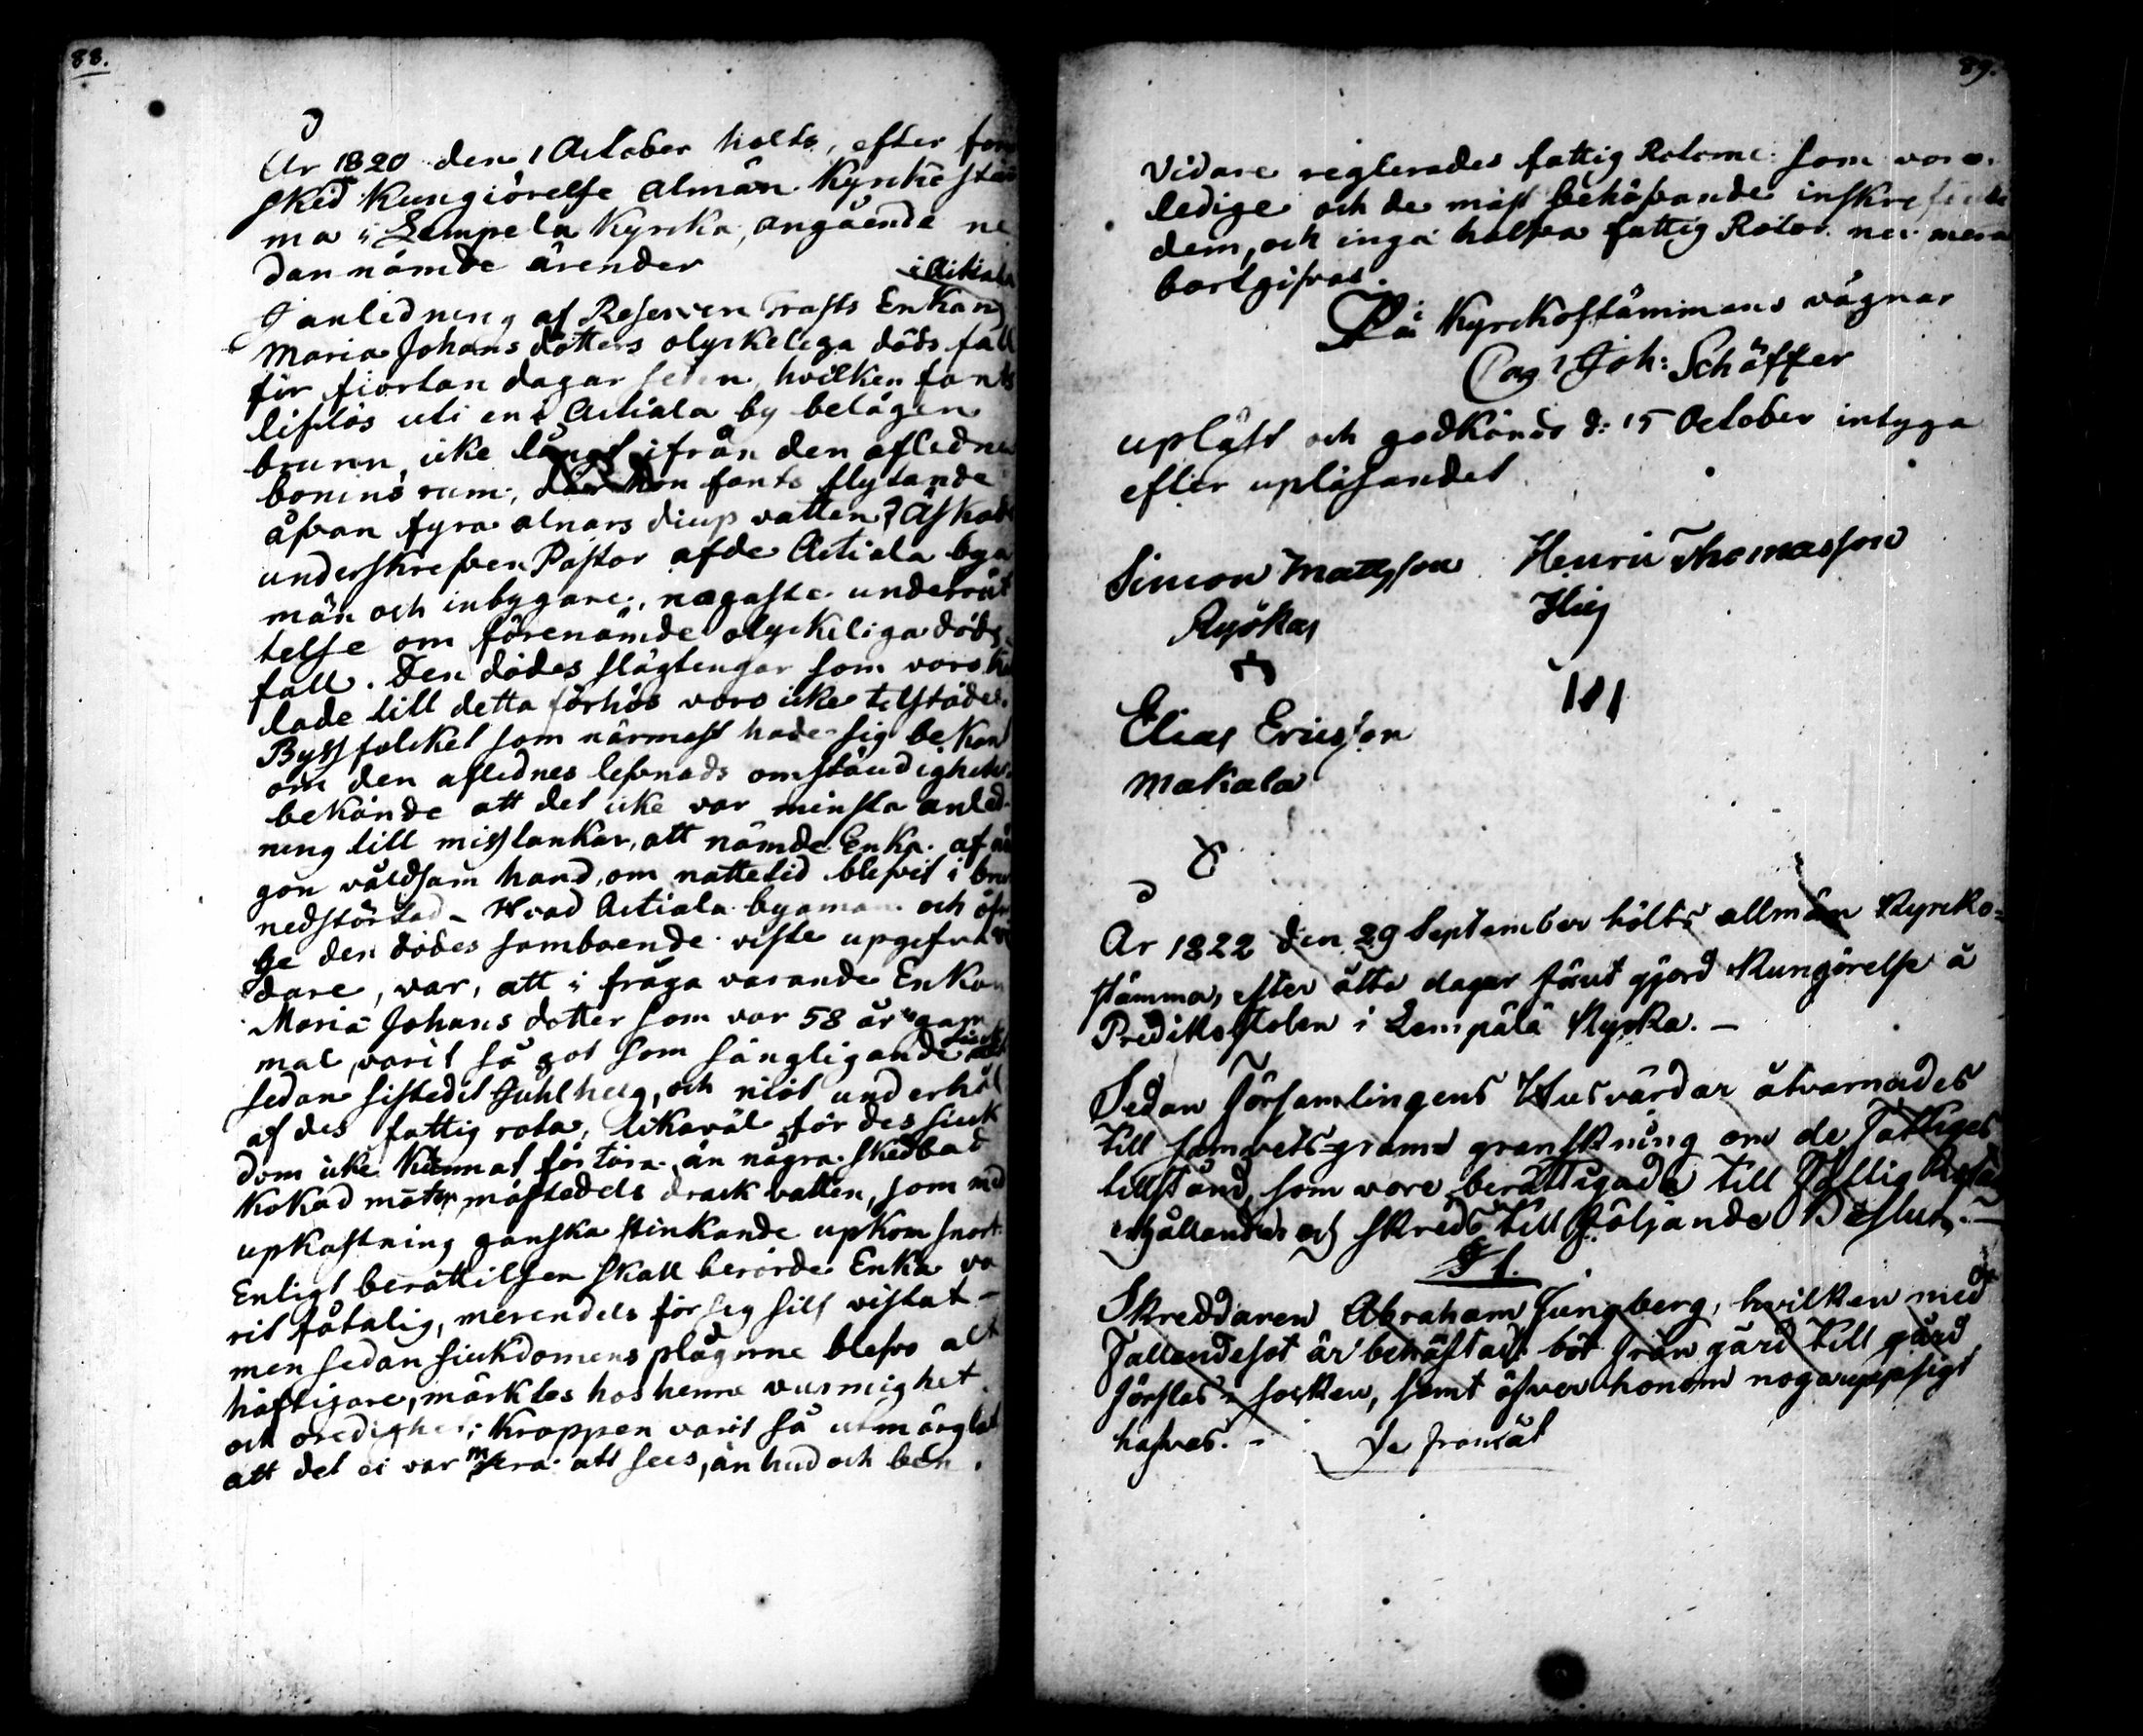 88.
År 1820 den 1 October holts, efter
sked Kungiörelse almän Kyrcko stäm
ma i Lempela Kyrcka, angående ne
dan nämde ärender
i Aitiala
I anledning af Reserven Trafts Enkan
Maria Johans dotters olyckeliga döds fall
för fiortan dagar seden, hvilken fants
liflös uti en i Aitiala by belägen
brunn, icke långt ifrån den aflednes
bonins rum, där hon fants flytande
åfvan fyra alnars diup vatten? Äskade
underskrefven Pastor af de Aitiala bya
män och inbygare, nogaste underrät
telse om förenämde olyckeliga döds
fall. Den dödes slägtingar som voro kal
lade till detta förhör voro icke tilstädes.
Byss folcket som närmast hade sig bekant
om den aflednes lefvnads omständigheter
bekände att det icke var minsta anled
ning till misstankar, att nämde Enka af nå
gon våldsam hand, om nattetid blefvit i brun
nedstörtad - Hvad Aitiala byaman och öfri
ge den dödes samboende viste upgifva
dare, var, att i fråga varande Enkan
Maria Johans dotter som var 58 år gam
mal, varit så got som sängligande siuk
sedan sistledit Juhl helg, och niöt underhål
af des fattig rota, likaväl för des siuk
dom icke kunnat förtära än några skedblad
kokad möter, mästedels drack vatten, som med
upkastning ganska stinkande upkom snart
Enligt berättilsen skall berörde Enka va
rit fåtalig, merendels för sig sielf vistat -
men sedan siukdomens plågorne blefvo alt
häftigare, märktes hos henne vurmighet
och oredighet; Kroppen varit så utmärglat
att det ei var mera att sees, än hud och ben.
89.
Vidare reglerades fattig Rotorne som voro
ledige och de mäst behöfvande inskrefvne
dem, och inga halfva fattig Rotor nu mera
bortgifvas.
På Kyrckostämmans vägnar
Joh: Schäffer
upläst och godkänds d: 15 October intyga
efter upläsandet
Simon Mattsson Henric Thomasson
Ryökäs
Elias Ericsson
Makala
År 1822 den 29 September hölts allmän Kyrcko-
stämma, efter åtta dagar förut gjord Kungörelse å
Predikstolen i Lempälä Kyrka. -
Sedan Församlingens Husvärdar åtvarnades
till samvets-grann granskning om de Fattiges
tillstånd, som vore berättigade till Fattig
erhållandes och skreds till följande Beslut. -
§ 1.
Skreddaren Abraham Jungberg, hvilken med
Fallandesot är behäftad bör från gård till gård
förslas i socken, samt öfver honom noga uppsigt
hafvas. -